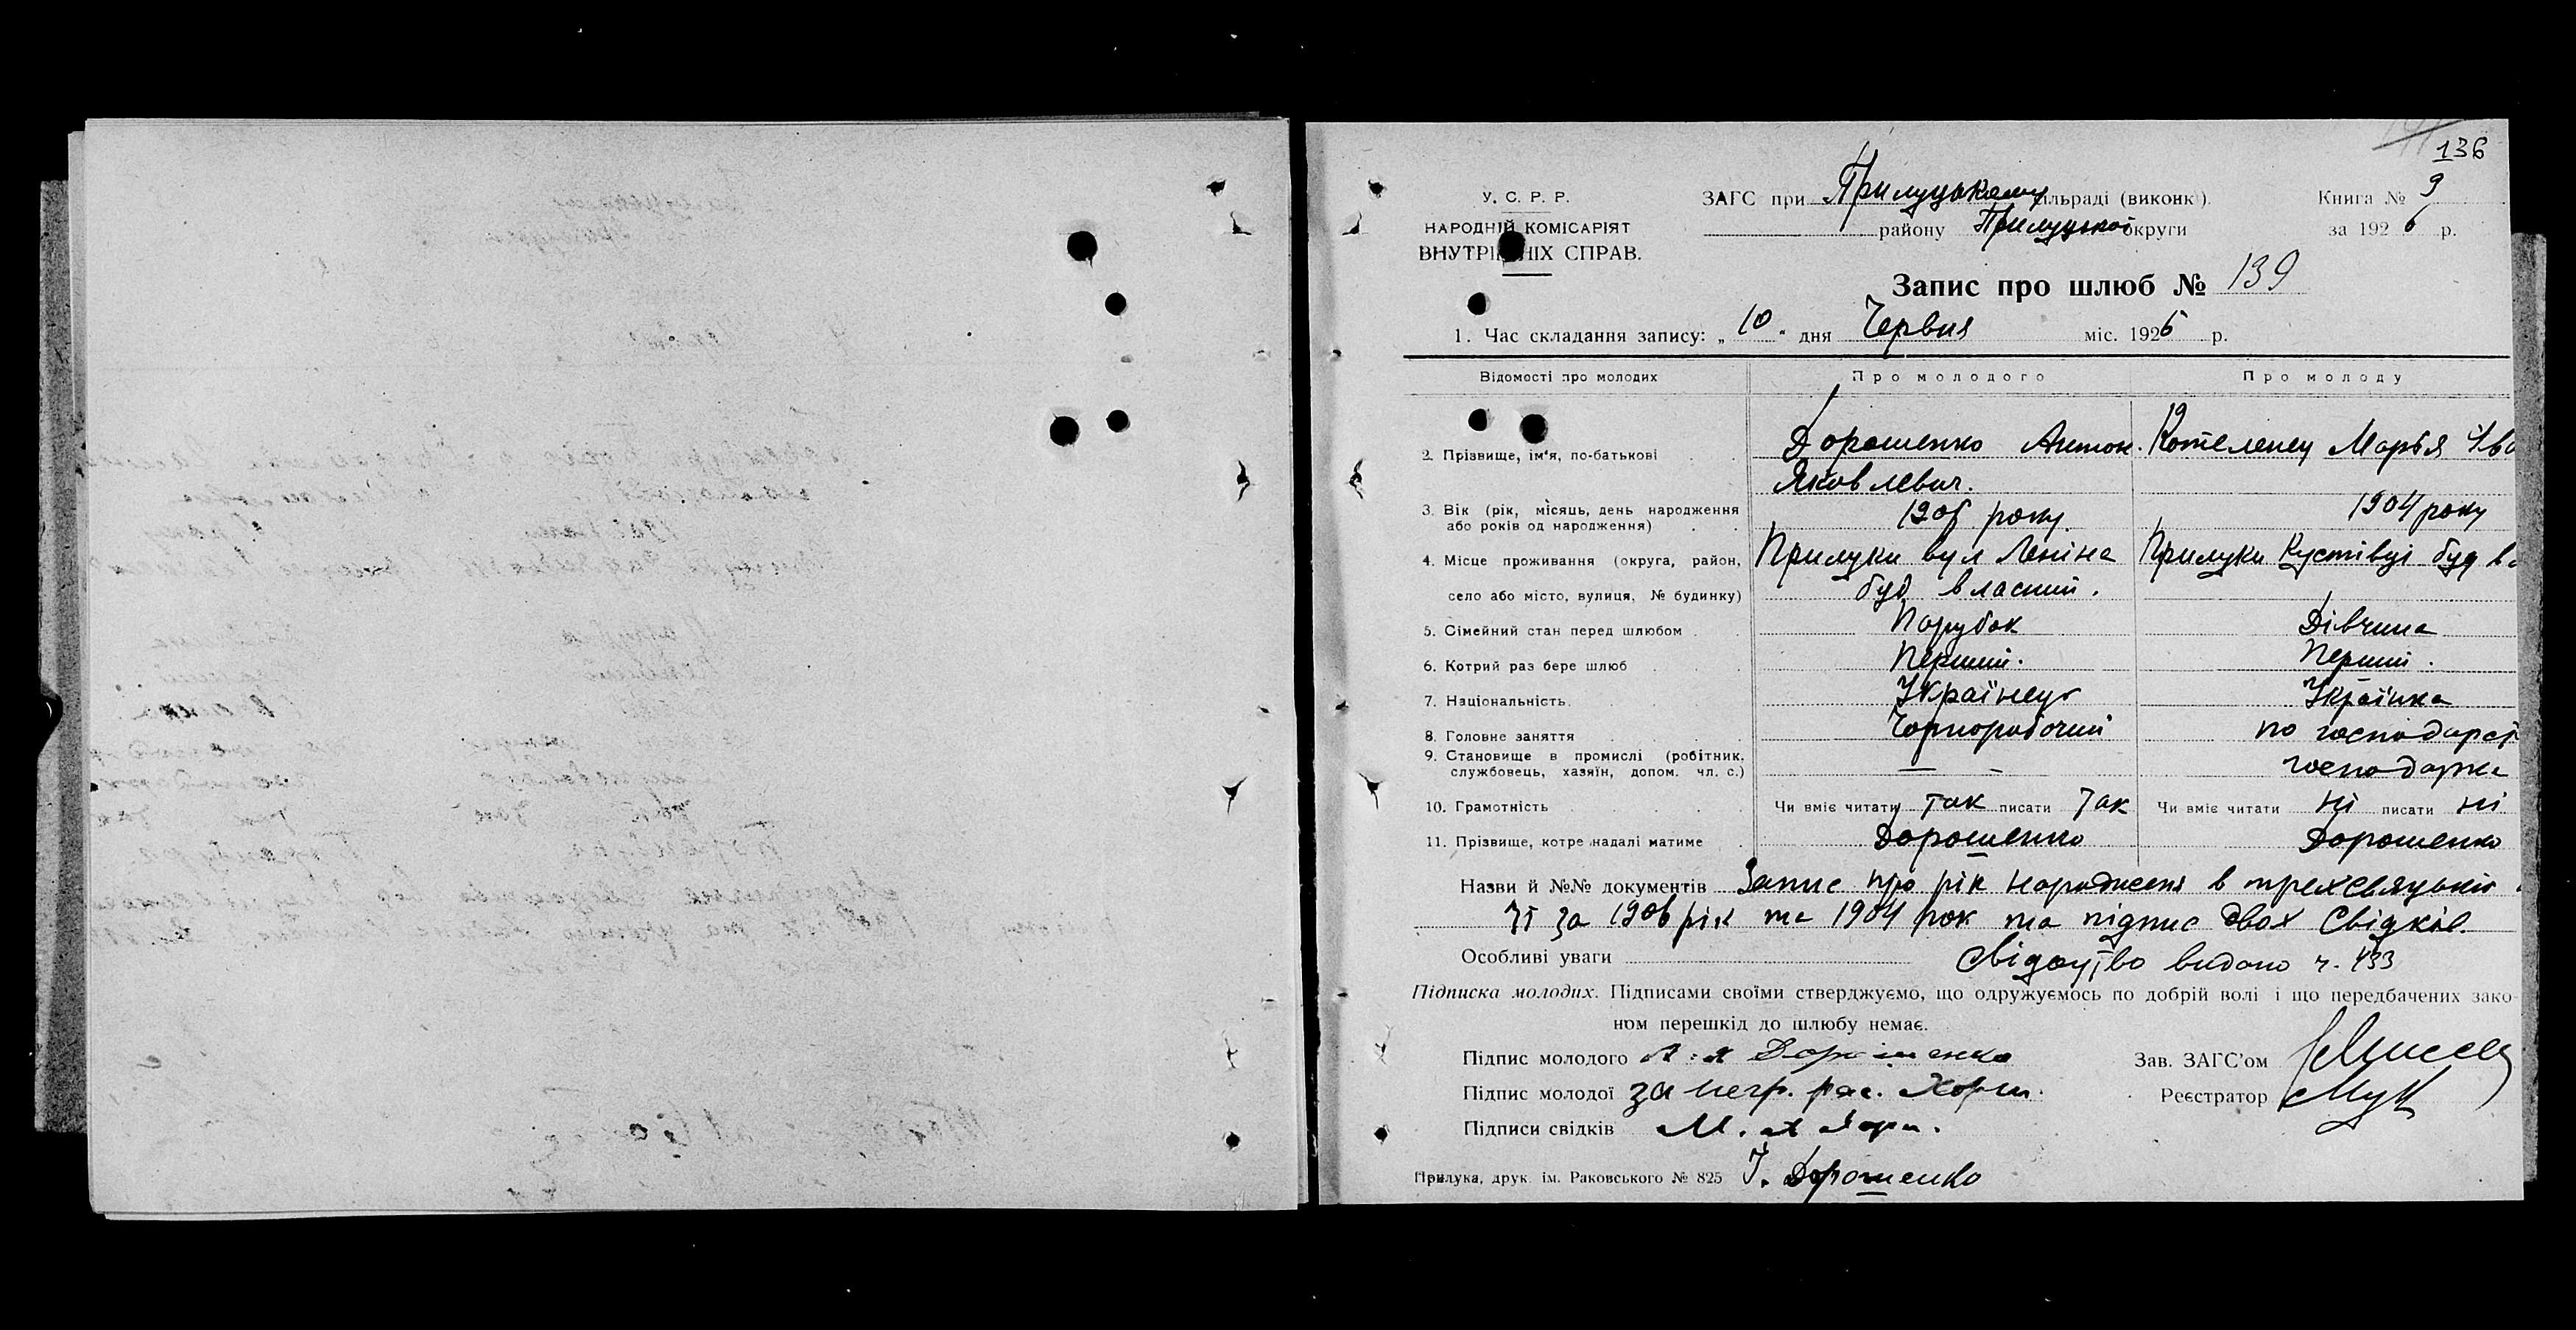 136
У. С. Р. Р.
НАРОДНІЙ КОМІСАРІЯТ
ВНУТРІШНІХ СПРАВ.
ЗАГС при Прилуцькому сільраді (виконк).
району Прилуцької округи
Книга № 9
за 1926 р.
Запис про шлюб № 139
1. Час складання запису: „10" дня Червня міс. 1926 р.
Відомості про молодих
Про молодого
Про молоду
2. Прізвище, ім'я, по-батькові
Дорошенко Антон.
Яковлевич.
Котеленец Марья Ива
3. Вік (рік, місяць, день народження
або років од народження)
1906 року.
1904 року
4. Місце проживання (округа, район,
село або місто, вулиця, № будинку)
Прилуки вул Леніна
буд власний.
Прилуки Кустівці буд в
5. Сімейний стан перед шлюбом
Парубок
Дівчина
6. Котрий раз бере шлюб
Перший.
Перший.
7. Національність
Українець
Українка
8. Головне заняття
Чорноробочий
по господарст
9. Становище в промислі (робітник,
службовець, хазяїн, допом. чл. с.)
— —
господарка
10. Грамотність
Чи вміє читати так писати Так
Чи вміє читати ні писати ні
11. Прізвище, котре надалі матиме
Дорошенко
Дорошенко
Назви й №№ документів Запис про рік народженя в трехсвяцькій
за 1906 рік та 1904 рок та підпис двох Свідків.
Особливі уваги Свідоцтво видано ч. 433
Підписка молодих. Підписами своїми стверджуємо, що одружуємось по добрій волі і що передбачених зако-
ном перешкід до шлюбу немає.
Підпис молодого А. Я Дорошенко
Підпис молодої за негр. рас.
Підписи свідків М.
І. Дорошенко
Зав. ЗАГС'ом
Реєстратор
Прилука, друк ім. Раковського № 825